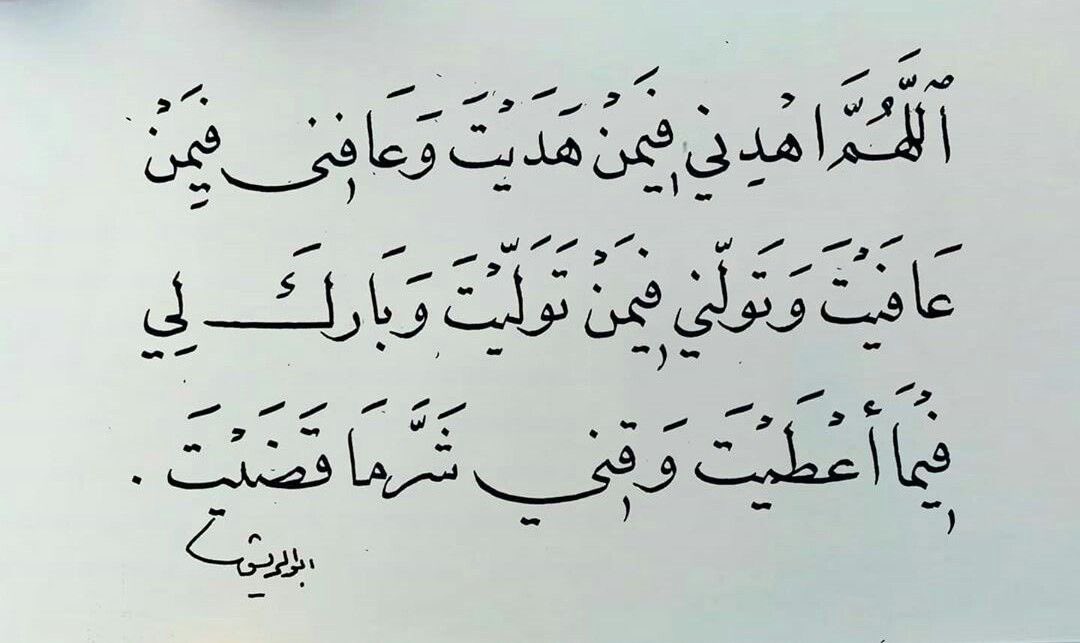 ٱللَّهُمَّ اهْدِنِي فِيمَنْ هَدَيْتَ وَعَافِنِى فِيمَنْ
عَافَيْتَ وَتَوَلَّنِي فِيمَنْ تَوَلَّيْتَ وَبَارِكَ لِي
فِيْمَا أَعْطَيْتَ وَقِنِي شَرَّ مَا قَضَيْتَ .